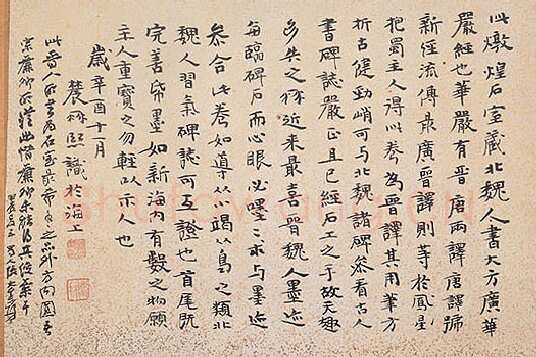 此燉煌石室藏北魏人書大方廣華
嚴經也華嚴有晉唐兩譯唐譯號
新經流傳最廣晉譯則等於鳳星
把蜀主人得此卷為晉譯其用筆方
折古健勁峭可與北魏諸碑參看古人
書碑誌嚴正且已經石工之手故天趣
多失之 近來最喜晉魏人墨迹
每臨碑石而心眼必嘿嘿求与墨迹
參合此卷如導从小竭从島之類北
魏人習氣碑誌可互證也首尾既
完善帋墨如新海内有數之物願
主人重寶之勿輕以示人也
歲辛酉十一月
農髯熙識於海上